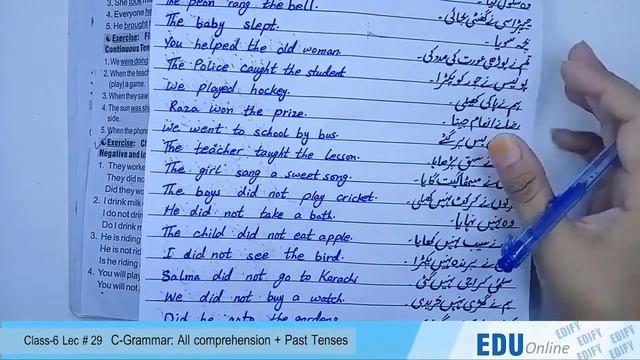 The peon rang the bell.
The baby slept.
You helped the old woman.
The Police caught the student
We played hockey.
Raza won the prize.
We went to school by bus.
The teacher taught the lesson.
The girl sang a sweet song.
The boys did not play cricket.
He did not take a bath.
The child did not eat apple.
I did not see the bird.
Salma did not go to Karachi
We did not buy a watch.
چپڑاسی نے گھنٹی بجائی ۔
بچہ سویا ۔
تم نے بوڑھی عورت کی مدد کی ۔
پولیس نے چور کو پکڑا ۔
ہم نے ہاکی کھیلی ۔
رضا نے انعام جیتا ۔
نے سبق پڑھایا ۔
نے میٹھا گیت گایا ۔
نے کرکٹ نہیں کھیلی ۔
وہ نہیں نہایا ۔
نے سیب نہیں کھایا ۔
سلمیٰ کراچی نہیں گئی ۔
ہم نے گھڑی نہیں خریدی ۔
3. She
4. Everyone
5. He brought
Exercise:
Continuous Ten
1. We were doing
2. When the teach
(play) a game.
3. When they saw
4. The sun was sh
side.
5. When the phon
Exercise:
Negative and In
1. They worke
They did no
Did they wor
2. I drink milk
I do not drin
Do I drink m
3. He is riding
He is not rid
Is he riding
4. You will play
Class-6 Lec # 29 C-Grammar: All comprehension + Past Tenses
EDU Online
EDIFY
EDIFY
EDIFY
EDIFY